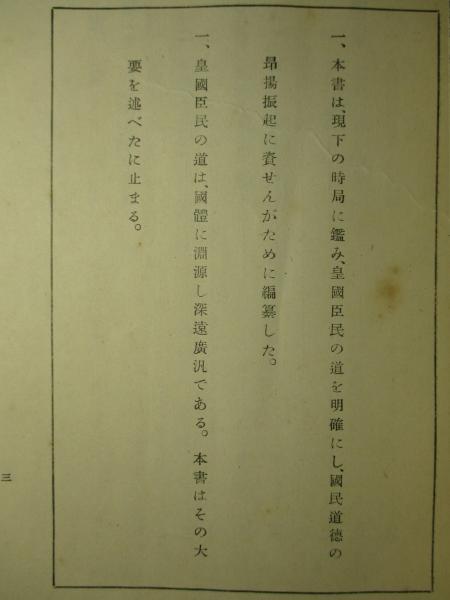 一、本書は、現下の時局に鑑み、皇國臣民の道を明確にし、國民道德の
昻揚振起に資せんがために編纂した。
一、皇國臣民の道は、國體に淵源し深遠廣汎である。本書はその大
要を述べたに止まる。
三